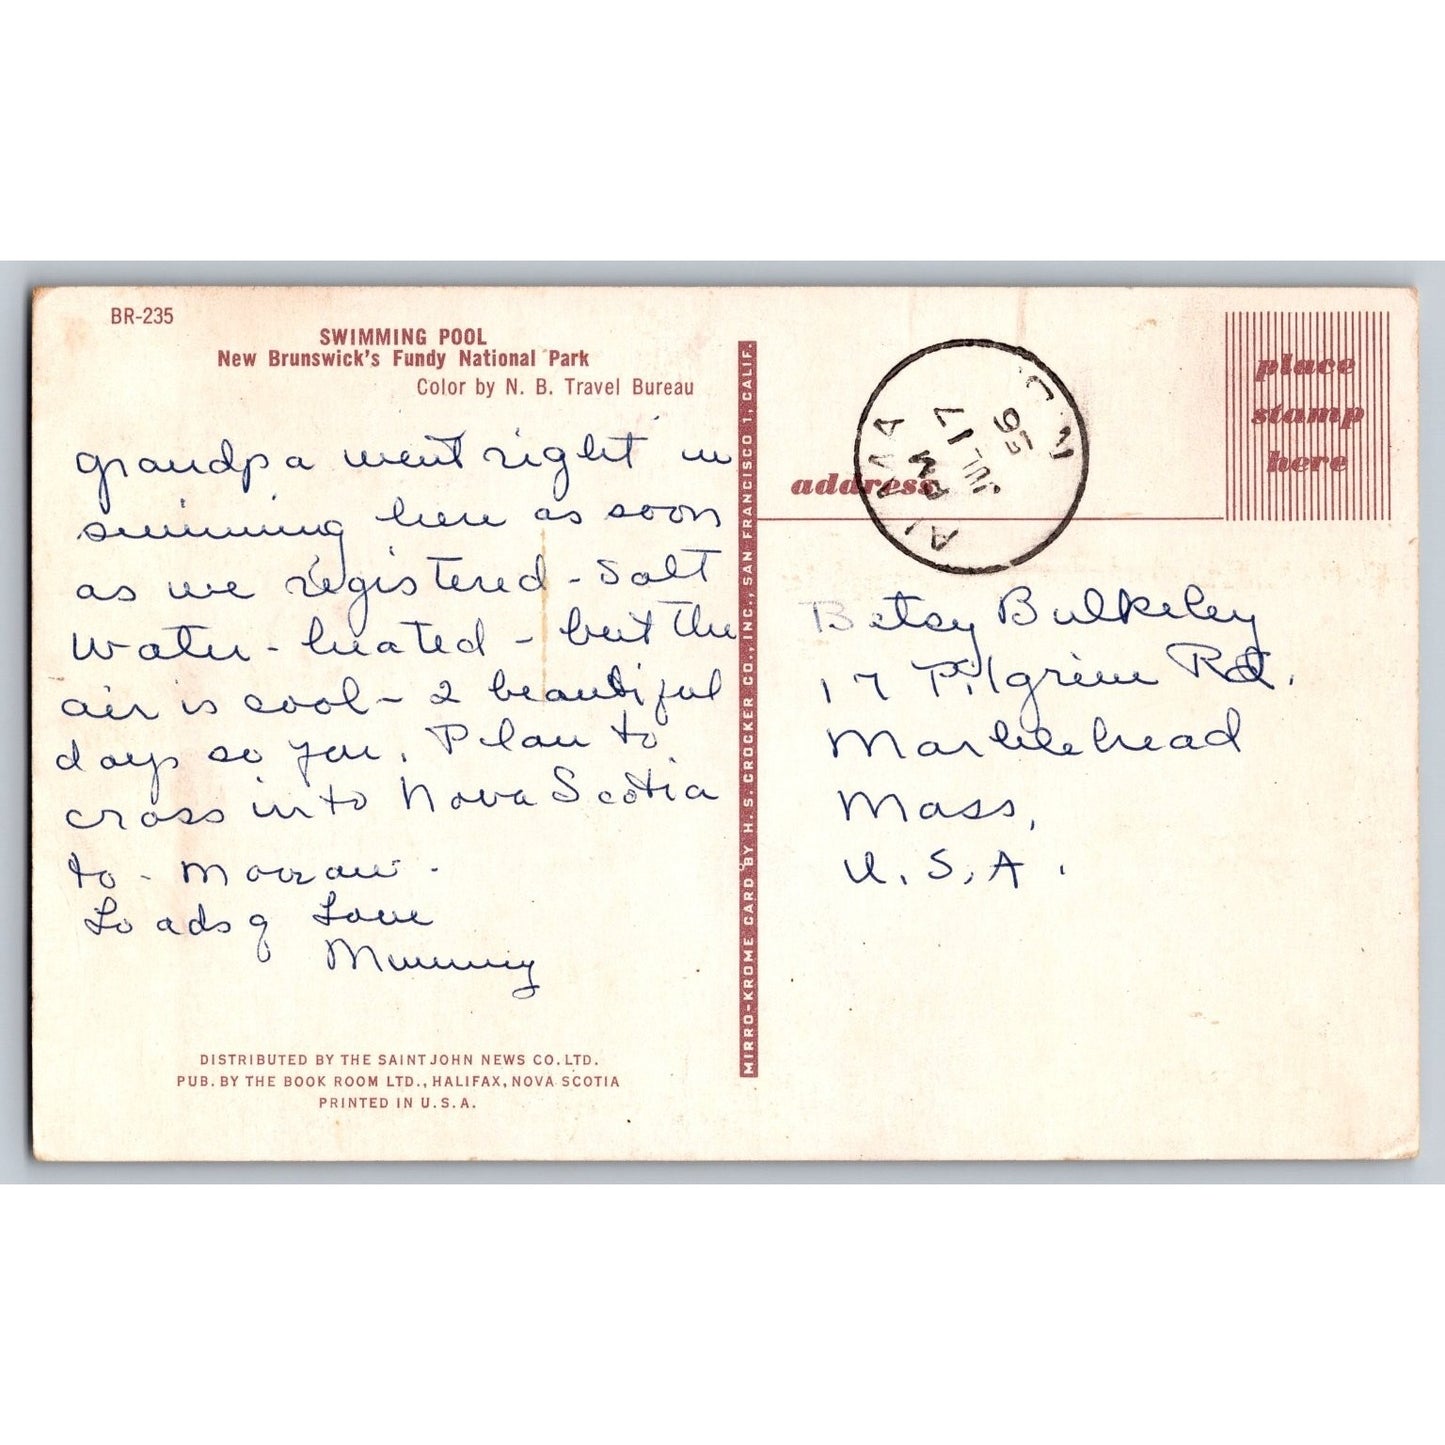 BR-235
SWIMMING POOL
New Brunswick's Fundy National Park
Color by N. B. Travel Bureau
grandpa went right in
swimming here as soon
as we registered - Salt
water - heated - but the
air is cool - 2 beautiful
days so far. Plan to
cross into Nova Scotia
to - morrow.
Loads of Love
Mummy
DISTRIBUTED BY THE SAINT JOHN NEWS CO. LTD.
PUB. BY THE BOOK ROOM LTD., HALIFAX, NOVA SCOTIA
PRINTED IN U.S.A.
MIRRO-KROME CARD BY H. S. CROCKER CO., INC., SAN FRANCISCO 1, CALIF.
address
ALMA
PM
JUL 17
56
place
stamp
here
Betsy Bulkeley
17 Pilgrim Rd.
Marblehead
Mass,
U.S.A.